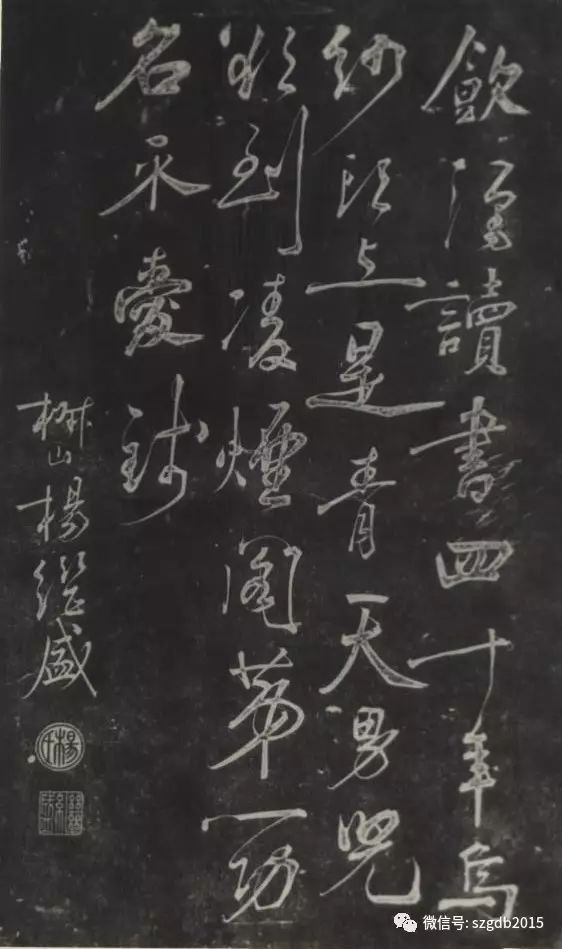 飲酒讀書四十年烏
紗頭上是青天男兒
欲到凌煙閣第一功
名不愛錢
椒山楊繼盛
微信号: szgdb2015